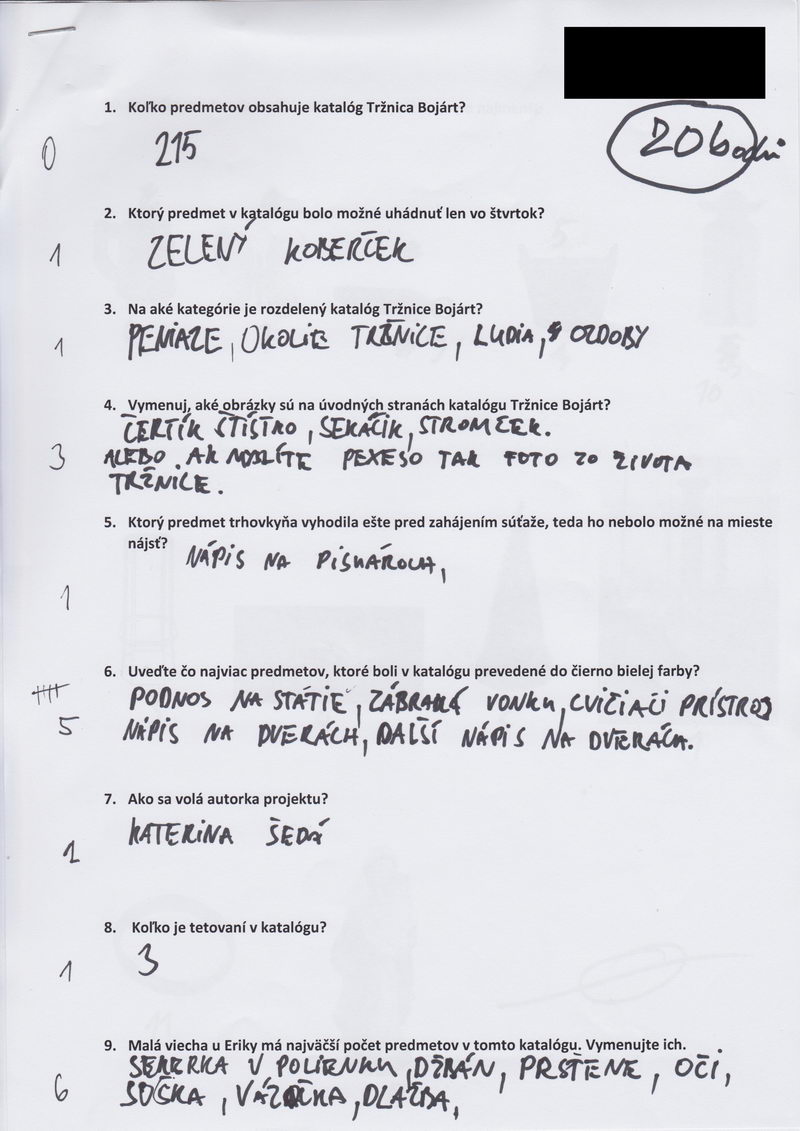 20 bodů
1. Koľko predmetov obsahuje katalóg Tržnica Bojárt?
0
215
2. Ktorý predmet v katalógu bolo možné uhádnuť len vo štvrtok?
1
ZELENÝ KOBERČEK
3. Na aké kategórie je rozdelený katalóg Tržnice Bojárt?
1
PENIAZE, OKOLIE TRŽNICE, ĽUDIA, OZDOBY
4. Vymenuj, aké obrázky sú na úvodných stranách katalógu Tržnice Bojárt?
ČERTÍK ŠTÍSTKO, SEKÁČIK, STROMČEK.
3
ALEBO. AK MYSLÍTE PEXESO TAK FOTO ZO ŽIVOTA
TRŽNICE.
5. Ktorý predmet trhovkyňa vyhodila ešte pred zahájením súťaže, teda ho nebolo možné na mieste
nájsť? NÁPIS NA PISKÁROCH,
1
6. Uveďte čo najviac predmetov, ktoré boli v katalógu prevedené do čierno bielej farby?
PODNOS NA STÁTIE, ZÁBRANA VONKU, CVIČIACI PRÍSTROJ
5
NÁPIS NA DVERÁCH, ĎALŠÍ NÁPIS NA DVERÁCH.
7. Ako sa volá autorka projektu?
KATERINA ŠEDÁ
1
8. Koľko je tetovaní v katalógu?
1
3
9. Malá viecha u Eriky má najväčší počet predmetov v tomto katalógu. Vymenujte ich.
SEKERKA V POLIENKU, DŽBÁN, PRSTENE, OČI,
6
SOŠKA, VÁZOČKA, DLAŽBA,